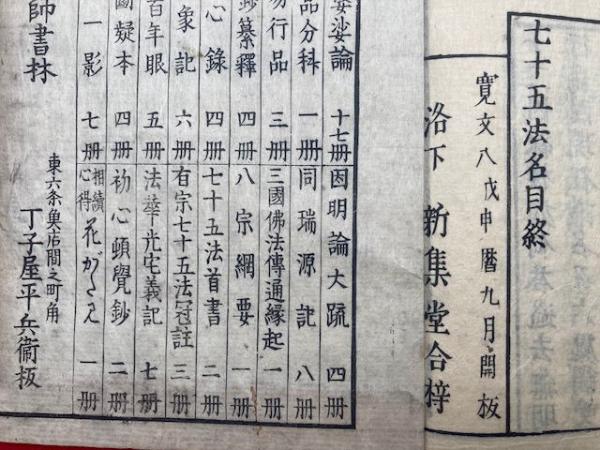 七十五法名目終
寛文八戊申暦九月開板
洛下 新集堂合梓
婆娑論 十七册
因明論大疏 四册
品分科 一册
同瑞源記 八册
易行品 三册
三國佛法傳通縁起 一册
鈔纂釋 四册
八宗綱要 一册
心錄 四册
七十五法首書 二册
象記 六册
有宗七十五法冠註 三册
百年眼 五册
法華光宅義記 七册
斷疑本 四册
初心頓覺鈔 二册
一影 七册
相續心得 花がたみ 一册
帥書林
東六条奥店間之町角
丁子屋平兵衞板